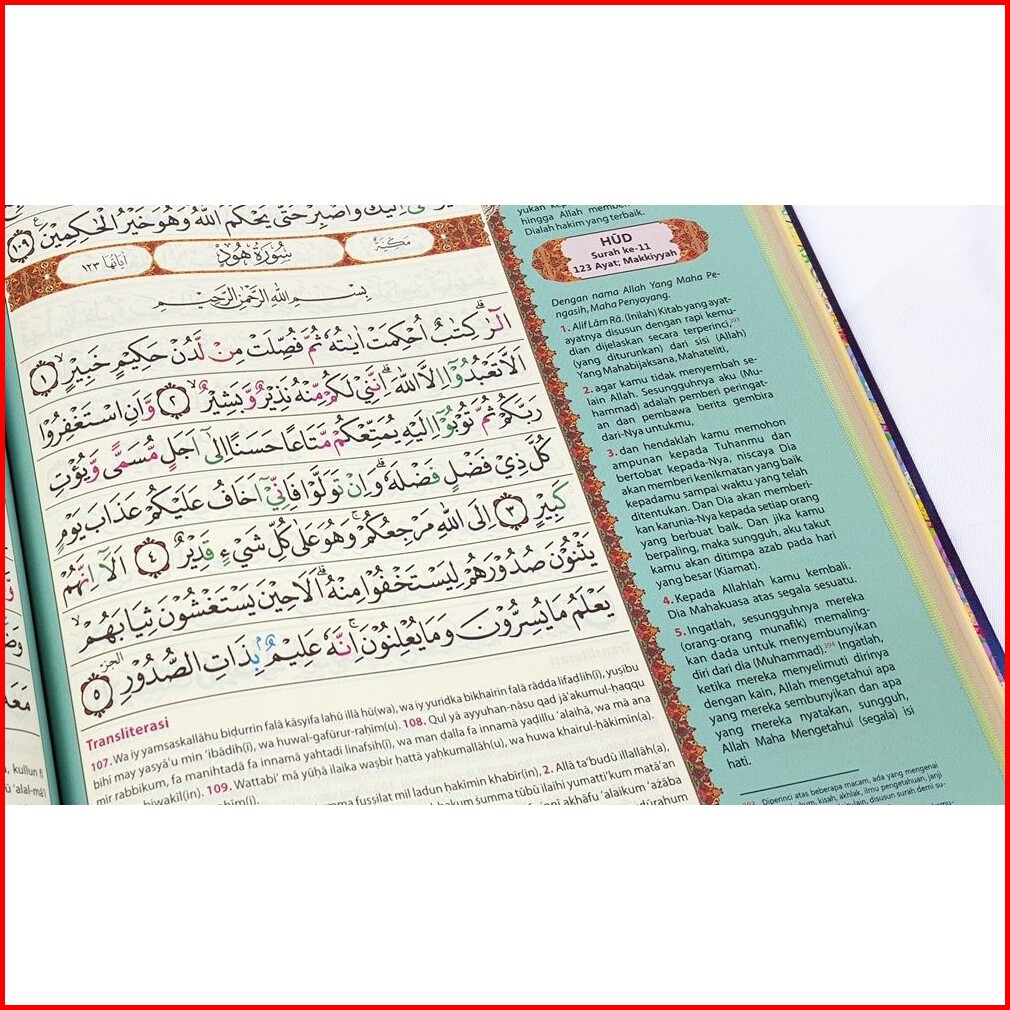 اِلَيْكَ وَاصْبِرْ حَتّٰى يَحْكُمَ اللّٰهُ وَهُوَ خَيْرُ الْحٰكِمِيْنَ ١٠٩
مَكِّيَّةٌ سُوْرَةُ هُوْدٍ اٰيَاتُهَا ١٢٣
بِسْمِ اللّٰهِ الرَّحْمٰنِ الرَّحِيْمِ
الۤرٰ ۗ كِتٰبٌ اُحْكِمَتْ اٰيٰتُهٗ ثُمَّ فُصِّلَتْ مِنْ لَّدُنْ حَكِيْمٍ خَبِيْرٍ ۙ ١
اَلَّا تَعْبُدُوْٓا اِلَّا اللّٰهَ ۗ اِنَّنِيْ لَكُمْ مِّنْهُ نَذِيْرٌ وَّبَشِيْرٌ ۙ ٢ وَّاَنِ اسْتَغْفِرُوْا
رَبَّكُمْ ثُمَّ تُوْبُوْٓا اِلَيْهِ يُمَتِّعْكُمْ مَّتَاعًا حَسَنًا اِلٰٓى اَجَلٍ مُّسَمًّى وَّيُؤْتِ
كُلَّ ذِيْ فَضْلٍ فَضْلَهٗ ۗ وَاِنْ تَوَلَّوْا فَاِنِّيْٓ اَخَافُ عَلَيْكُمْ عَذَابَ يَوْمٍ
كَبِيْرٍ ٣ اِلَى اللّٰهِ مَرْجِعُكُمْ ۚ وَهُوَ عَلٰى كُلِّ شَيْءٍ قَدِيْرٌ ٤ اَلَآ اِنَّهُمْ
يَثْنُوْنَ صُدُوْرَهُمْ لِيَسْتَخْفُوْا مِنْهُ ۗ اَلَا حِيْنَ يَسْتَغْشُوْنَ ثِيَابَهُمْ ۙ
يَعْلَمُ مَا يُسِرُّوْنَ وَمَا يُعْلِنُوْنَ ۚ اِنَّهٗ عَلِيْمٌ ۢ بِذَاتِ الصُّدُوْرِ ٥
الجزء
Transliterasi
107. Wa iy yamsaskallāhu biḍurrin falā kāsyifa lahū illā hū(wa), wa iy yuridka bikhairin falā rādda lifaḍlih(ī), yuṣību
bihī may yasyā'u min 'ibādih(ī), wa huwal-gafūrur-raḥīm(u). 108. Qul yā ayyuhan-nāsu qad jā'akumul-ḥaqqu
mir rabbikum, fa manihtadā fa innamā yahtadī linafsih(ī), wa man ḍalla fa innamā yaḍillu 'alaihā, wa mā ana
biwakīl(in). 109. Wattabi' mā yūḥā ilaika waṣbir ḥattā yaḥkumallāh(u), wa huwa khairul-ḥākimīn(a).
fuṣṣilat mil ladun ḥakīmin khabīr(in), 2. Allā ta'budū illallāh(a),
ṡumma tūbū ilaihi yumatti'kum matā'an
akhāfu 'alaikum 'ażāba
hingga Allah
Dialah hakim yang terbaik.
HŪD
Surah ke-11
123 Ayat; Makkiyyah
Dengan nama Allah Yang Maha Pe-
ngasih, Maha Penyayang.
1. Alif Lām Rā. (Inilah) Kitab yang ayat-
ayatnya disusun dengan rapi kemu-
dian dijelaskan secara terperinci,³⁹³
(yang diturunkan) dari sisi (Allah)
Yang Mahabijaksana, Mahateliti,
2. agar kamu tidak menyembah se-
lain Allah. Sesungguhnya aku (Mu-
hammad) adalah pemberi peringat-
an dan pembawa berita gembira
dari-Nya untukmu,
3. dan hendaklah kamu memohon
ampunan kepada Tuhanmu dan
bertobat kepada-Nya, niscaya Dia
akan memberi kenikmatan yang baik
kepadamu sampai waktu yang telah
ditentukan. Dan Dia akan memberi-
kan karunia-Nya kepada setiap orang
yang berbuat baik. Dan jika kamu
berpaling, maka sungguh, aku takut
kamu akan ditimpa azab pada hari
yang besar (Kiamat).
4. Kepada Allahlah kamu kembali.
Dia Mahakuasa atas segala sesuatu.
5. Ingatlah, sesungguhnya mereka
(orang-orang munafik) memaling-
kan dada untuk menyembunyikan
diri dari dia (Muhammad).³⁹⁴ Ingatlah,
ketika mereka menyelimuti dirinya
dengan kain, Allah mengetahui apa
yang mereka sembunyikan dan apa
yang mereka nyatakan, sungguh,
Allah Maha Mengetahui (segala) isi
hati.
393 Diperinci atas beberapa macam, ada yang mengenai
kisah, akhlak, ilmu pengetahuan, janji
disusun surah demi su-